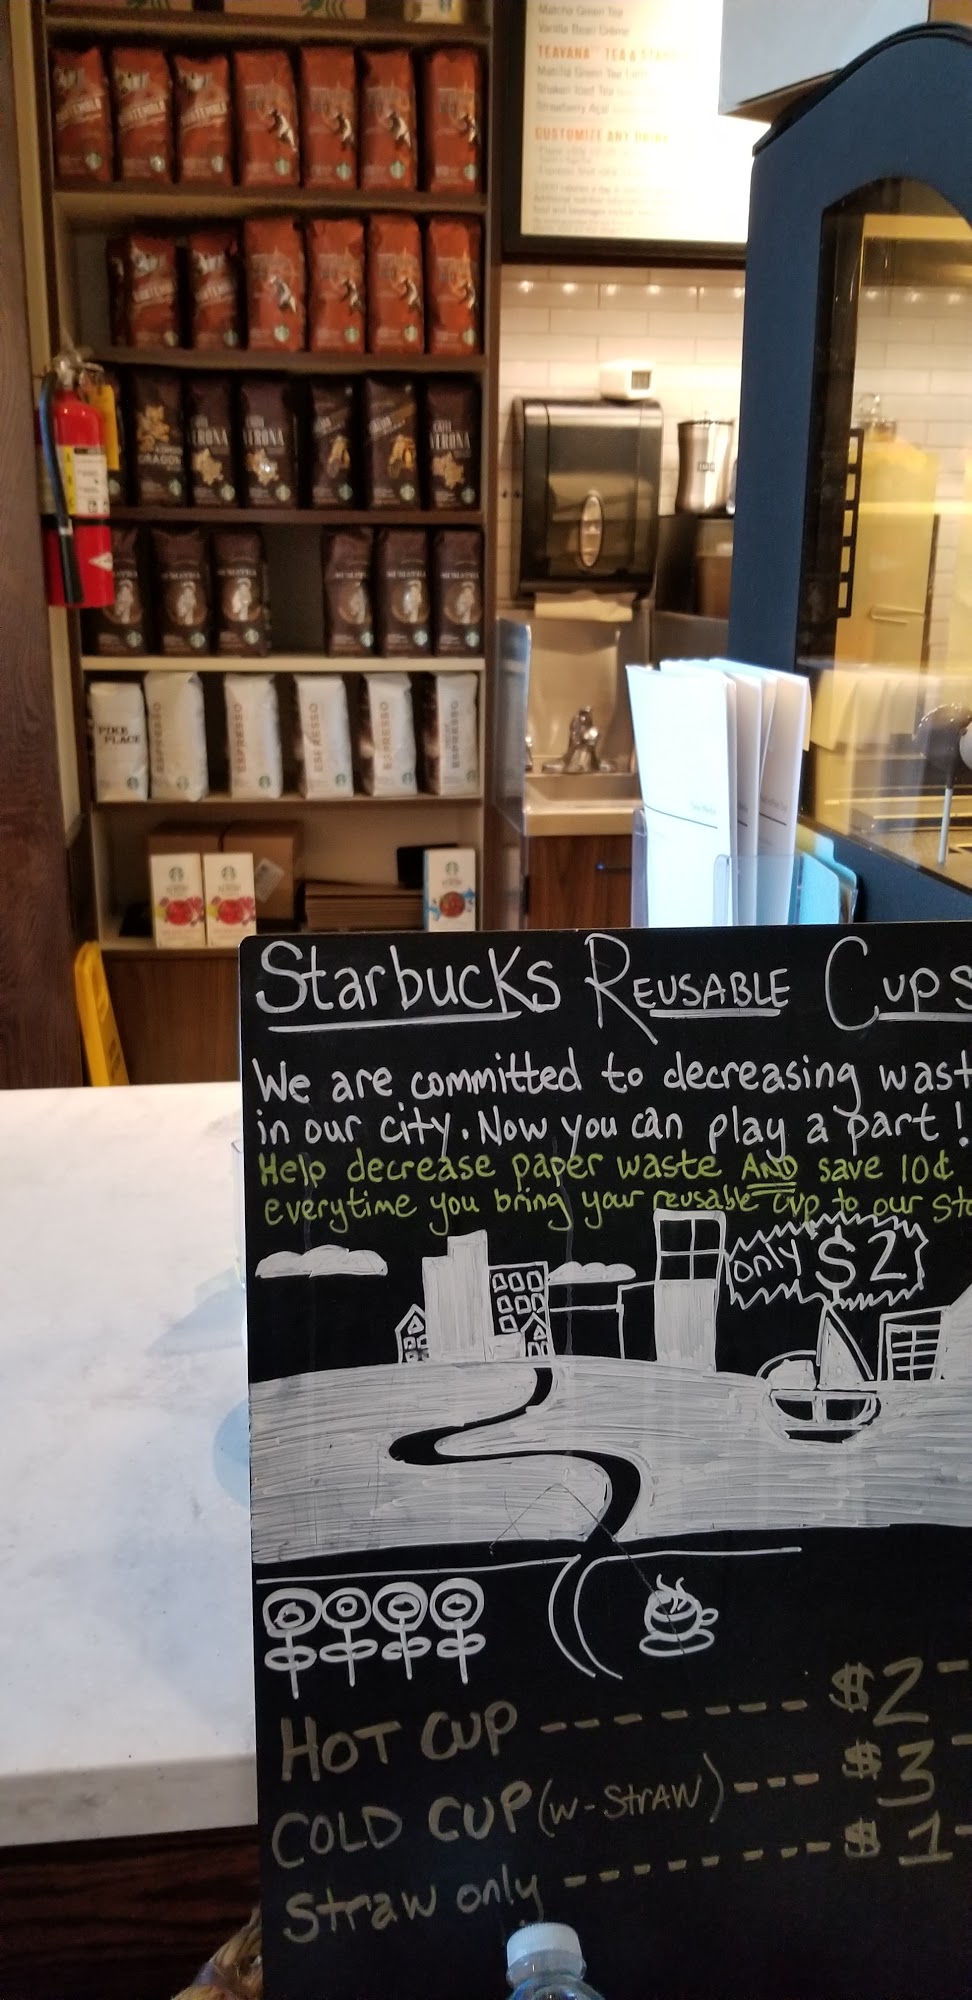 Matcha Green Tea
Vanilla Bean Crème
TEAVANA™ TEA & STAR
Matcha Green Tea Latte
Shaken Iced Tea
Strawberry Açaí
CUSTOMIZE ANY DRINK
GUATEMALA
GUATEMALA
GUATEMALA
GUATEMALA
GUATEMALA
KOMODO
DRAGON
CAFFÈ
VERONA
CAFFÈ
VERONA
CAFFÈ
VERONA
SUMATRA
SUMATRA
SUMATRA
SUMATRA
SUMATRA
PIKE
PLACE
ESPRESSO
ESPRESSO
ESPRESSO
ESPRESSO
ESPRESSO
ESPRESSO
Starbucks Reusable Cups
We are committed to decreasing wast
in our city. Now you can play a part!
Help decrease paper waste AND save 10¢
everytime you bring your reusable cup to our sto
only $2
HOT CUP ------- $2-
COLD CUP (w-Straw) --- $3-
Straw only ------- $1-